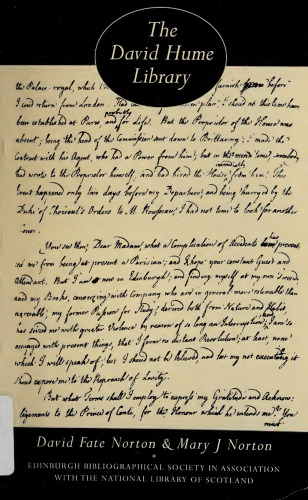 The
David Hume
Library
the Palais-royal, which
I cou'd return from London. Had
been established at Paris, probably and for Life. But the Proprietor of the House was
absent; being the head of the Commission sent down to Brittany: I made the
Contract with his Agent, who had a Power from him; but in this mean time, somebody
had wrote to the Proprietor himself, and had hired the House from him. This
Event happened only two days before my Departure; and being hurryed by the
Duke of
House.
Now see thus, Dear Madam, what a Complication of Accidents has prevent-
ed me from being at present a Parisian; and I hope your constant Guest and
Attendant. But I am now in Edinburgh; and finding myself at my own
and my Books, conversing with Company who are in general more reasonable than
agreeable; my former Passion for Study, deriv'd both from Nature and Habit,
has seized me with greater Violence by reason of so long an Interruption; I am so
occupy'd with present things, that I form no distant Resolution; at least, none
which I will speak of; for I should not be believed, and for my not executing it
shou'd expose me to the Reproach of Levity.
But what Terms shall I employ to express my Gratitude and Acknow-
ligements to the Prince of Conti, for the Honour which he intends me? You
must
David Fate Norton & Mary J Norton
EDINBURGH BIBLIOGRAPHICAL SOCIETY IN ASSOCIATION
WITH THE NATIONAL LIBRARY OF SCOTLAND